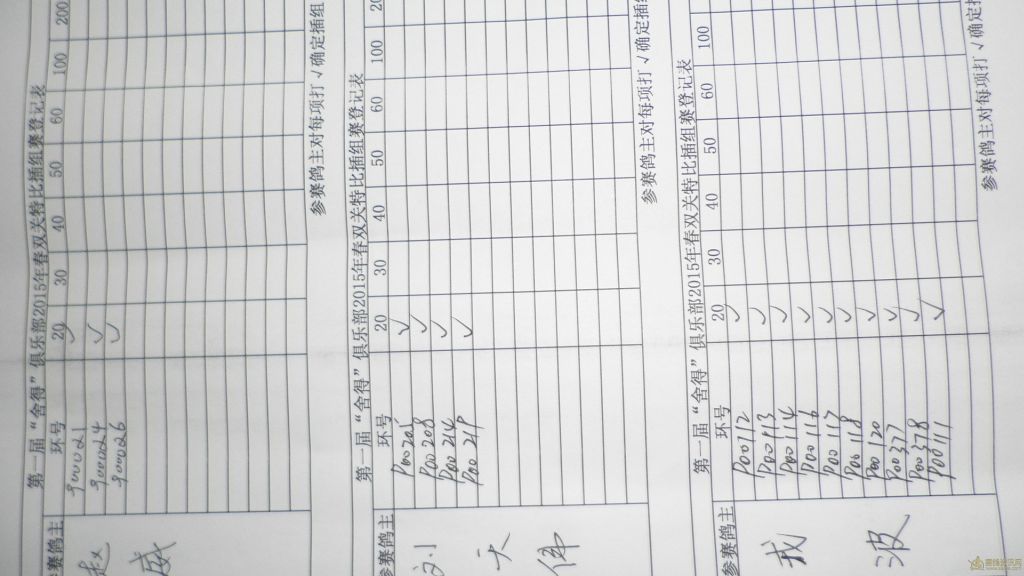 第一届“舍得”俱乐部2015年春双关特比插组赛登记表
参赛鸽主 环号 20 30 40 50 60 100 200
赵威
900021 ✓
900024 ✓
900026 ✓
参赛鸽主对每项打√确定插组
第一届“舍得”俱乐部2015年春双关特比插组赛登记表
参赛鸽主 环号 20 30 40 50 60 100 20
刘天伟
P00205 ✓
P00208 ✓
P00214 ✓
P00219 ✓
参赛鸽主对每项打√确定插组
第一届“舍得”俱乐部2015年春双关特比插组赛登记表
参赛鸽主 环号 20 30 40 50 60 100
波
P00112 ✓
P00113 ✓
P00114 ✓
P00116 ✓
P00117 ✓
P00118 ✓
P00120 ✓
P00377 ✓
P00378 ✓
P00111 ✓
参赛鸽主对每项打√确定插